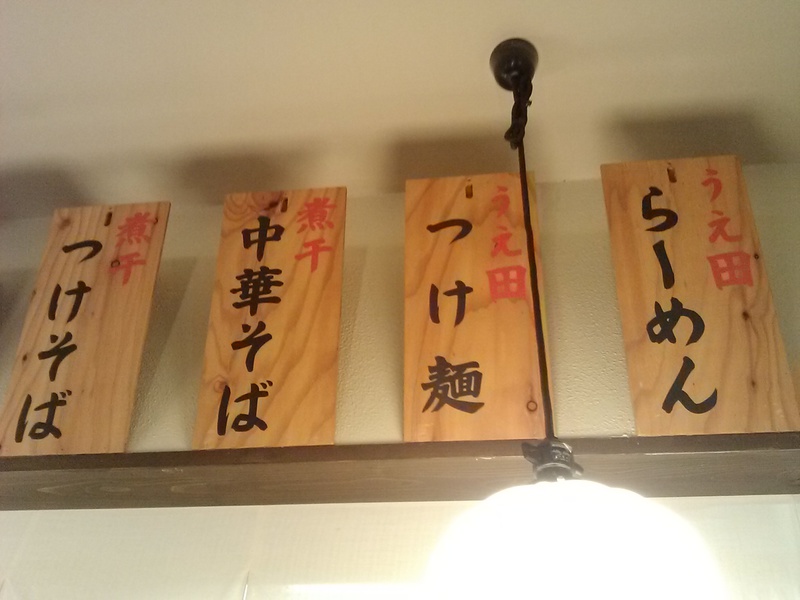 うえ田
らーめん
うえ田
つけ麺
煮干
中華そば
煮干
つけそば